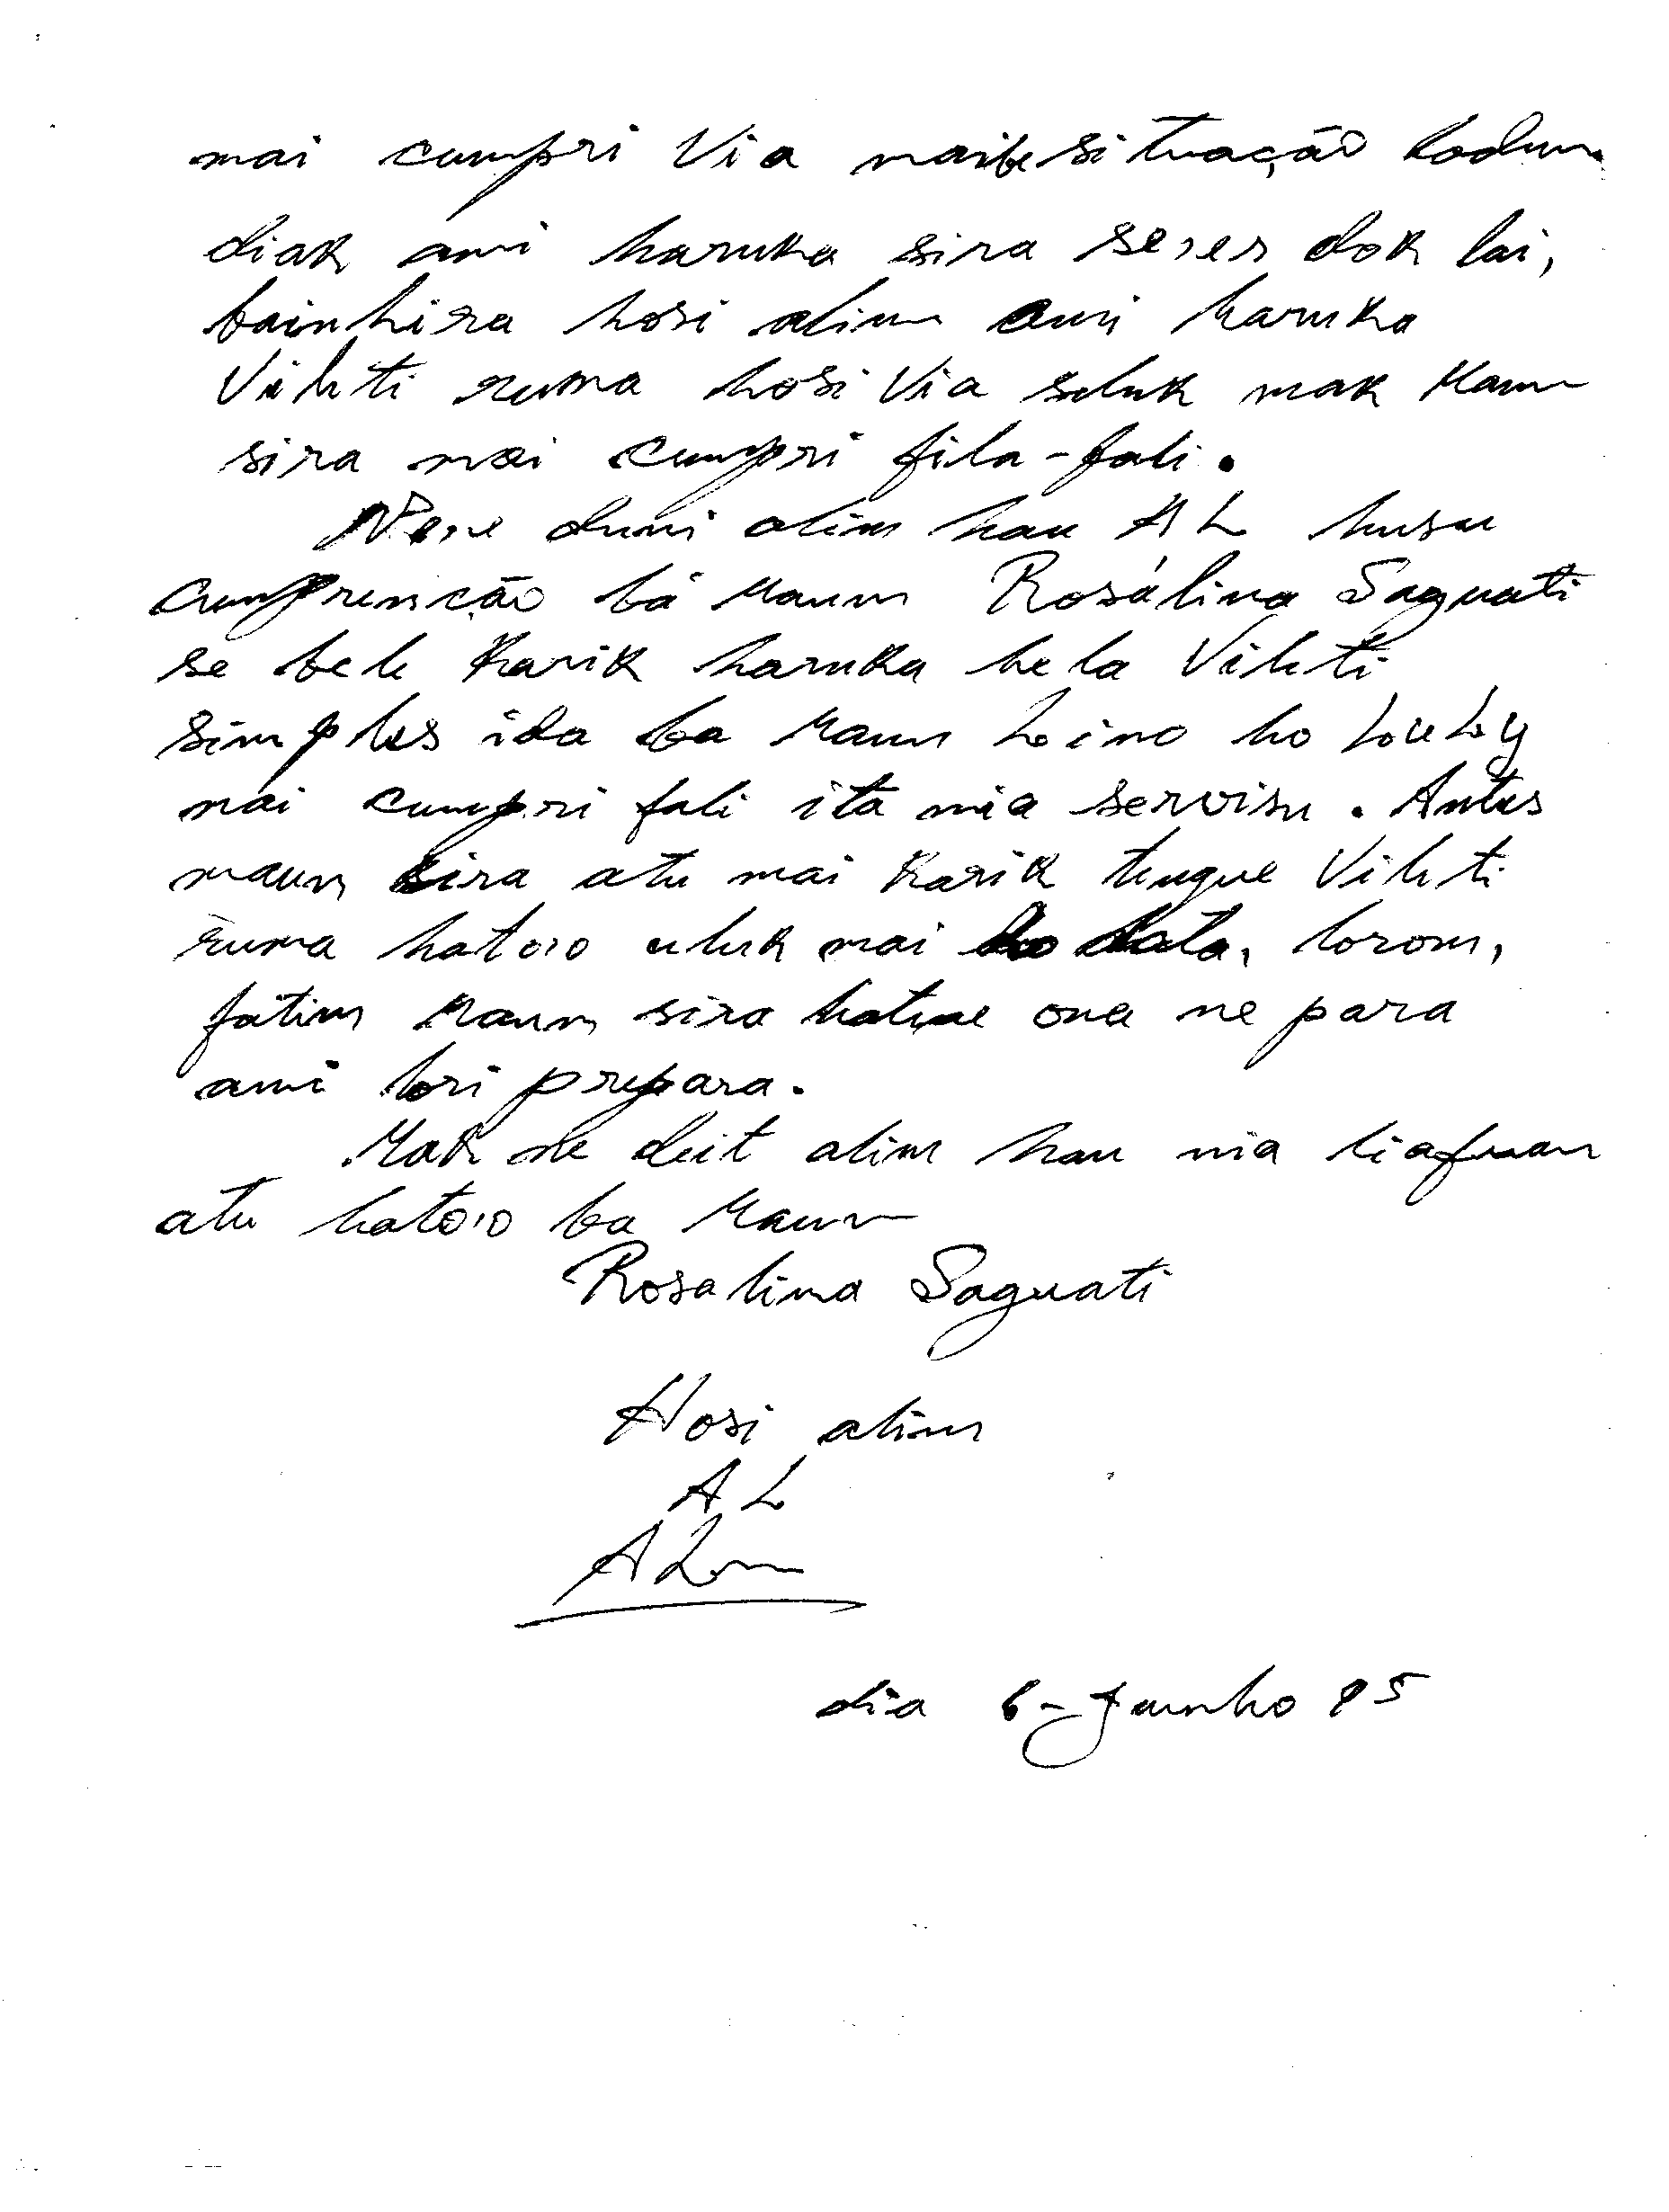 mai cumpri Via maibe situação Ladun
diak ami haruka sira se'es dok lai,
bainhira hosi alin ami haruka
Vileti ruma hosi Via seluk mak Maun
sira mai cumpri fila-fali.
Ne'e duni alin hau AL husu
cumprencão bá Maun Rosálina Saguati
se bele Karik haruka hela Vileti
simples ida ba Maun Leino ho
mai cumpri fali ita nia servisu. Antes
maun sira atu mai Karik tengue Vileti
ruma hato'o uluk mai data, loron,
fatin Maun sira hatene ona ne para
ami bori prepara.
Mak ne deit alin hau nia liafuan
atu hato'o ba Maun
Rosalina Saguati
Hosi alin
AL
dia 6-Junho 95